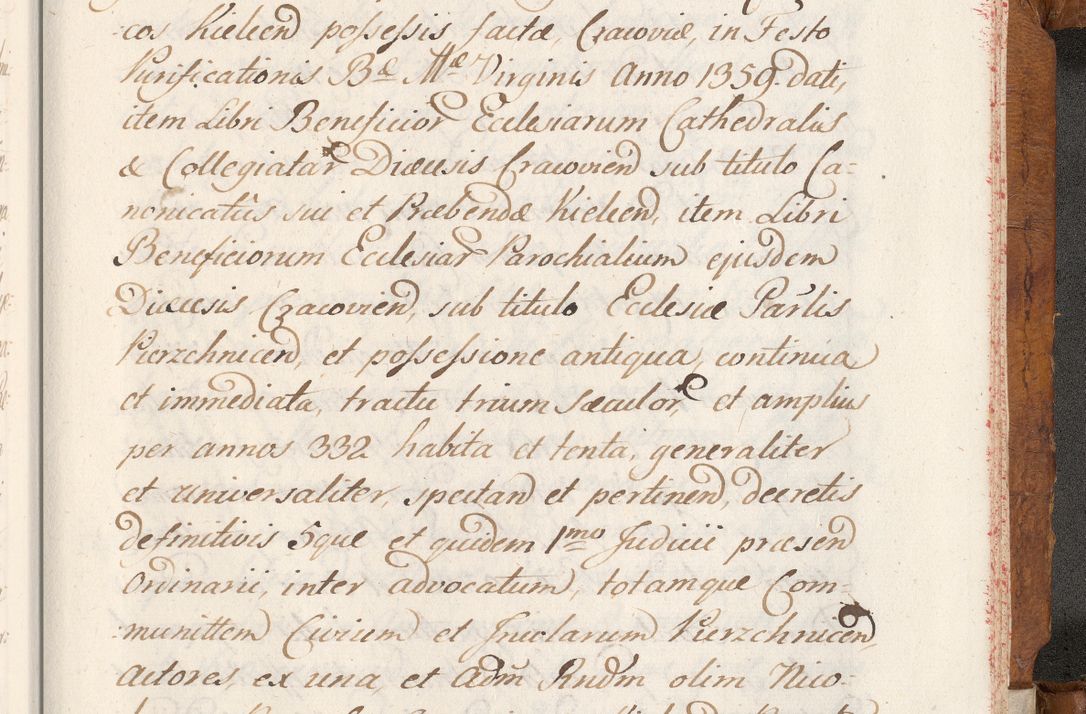 cos Kielcen possessis factæ, Cracoviæ, in Festo
Purificationis Bæ Mæ Virginis Anno 1359. dati,
item Libri Beneficior Ecclesiarum Cathedralis
& Collegiatar Diæcesis Cracovien sub titulo Ca=
nonicatûs sui et Præbendæ Kielcen, item Libri
Beneficiorum Ecclesiar Parochialium ejusdem
Diæcesis Cracovien, sub titulo Ecclesiæ Parlis
Pierzchnicen, et possessione antiqua, continua
et immediata, tractu trium Sæculor, et amplius
per annos 332 habita et tenta, generaliter
et universaliter, spectan et pertinen, decretis
definitivis 5que et quidem 1mo Judicii præsen
Ordinarii, inter advocatum, totamque Com=
munittem Civium et Incolarum Pierzchnicen,
actores, ex una, et Adm Rndm olim Nico=